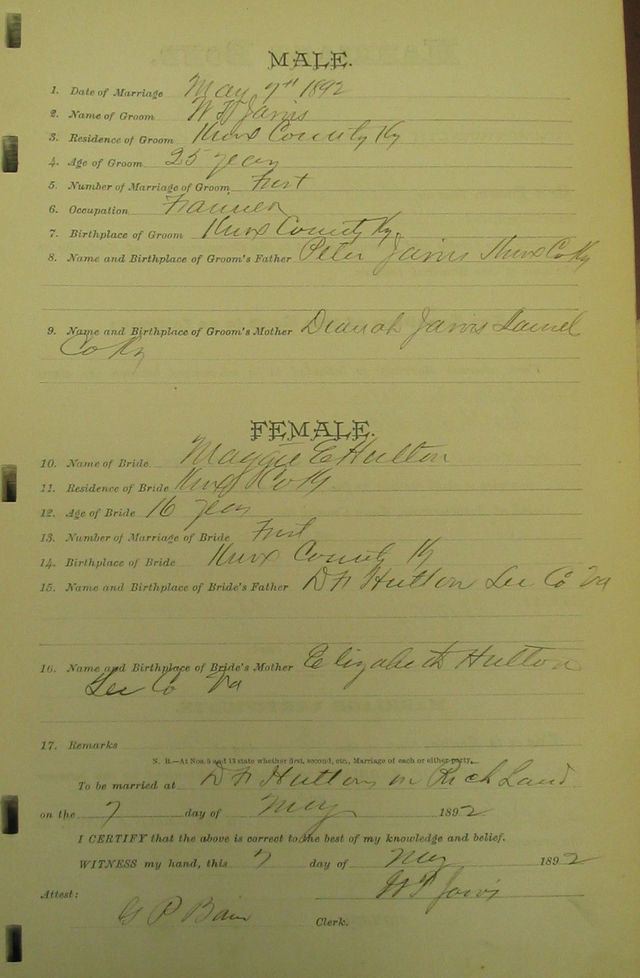 MALE.
1. Date of Marriage May 7th 1892
2. Name of Groom Jarvis
3. Residence of Groom Knox County Ky
4. Age of Groom 25 years
5. Number of Marriage of Groom First
6. Occupation Farmer
7. Birthplace of Groom Knox County Ky.
8. Name and Birthplace of Groom's Father Peter Jarvis Knox Co Ky
9. Name and Birthplace of Groom's Mother Jarvis Laurel
Co Ky
FEMALE.
10. Name of Bride Maggie E Hutton
11. Residence of Bride Knox Co Ky
12. Age of Bride 16 years
13. Number of Marriage of Bride First
14. Birthplace of Bride Knox County Ky
15. Name and Birthplace of Bride's Father Hutton Lee Co Va
16. Name and Birthplace of Bride's Mother Elizabeth Hutton
Lee Co Va
17. Remarks
N. B.—At Nos. 5 and 13 state whether first, second, etc., Marriage of each or either party.
To be married at Hutton on Rich Land
on the 7 day of May 1892
I CERTIFY that the above is correct to the best of my knowledge and belief.
WITNESS my hand, this 7 day of May 1892
Jarvis
Attest:
G P Bain Clerk.